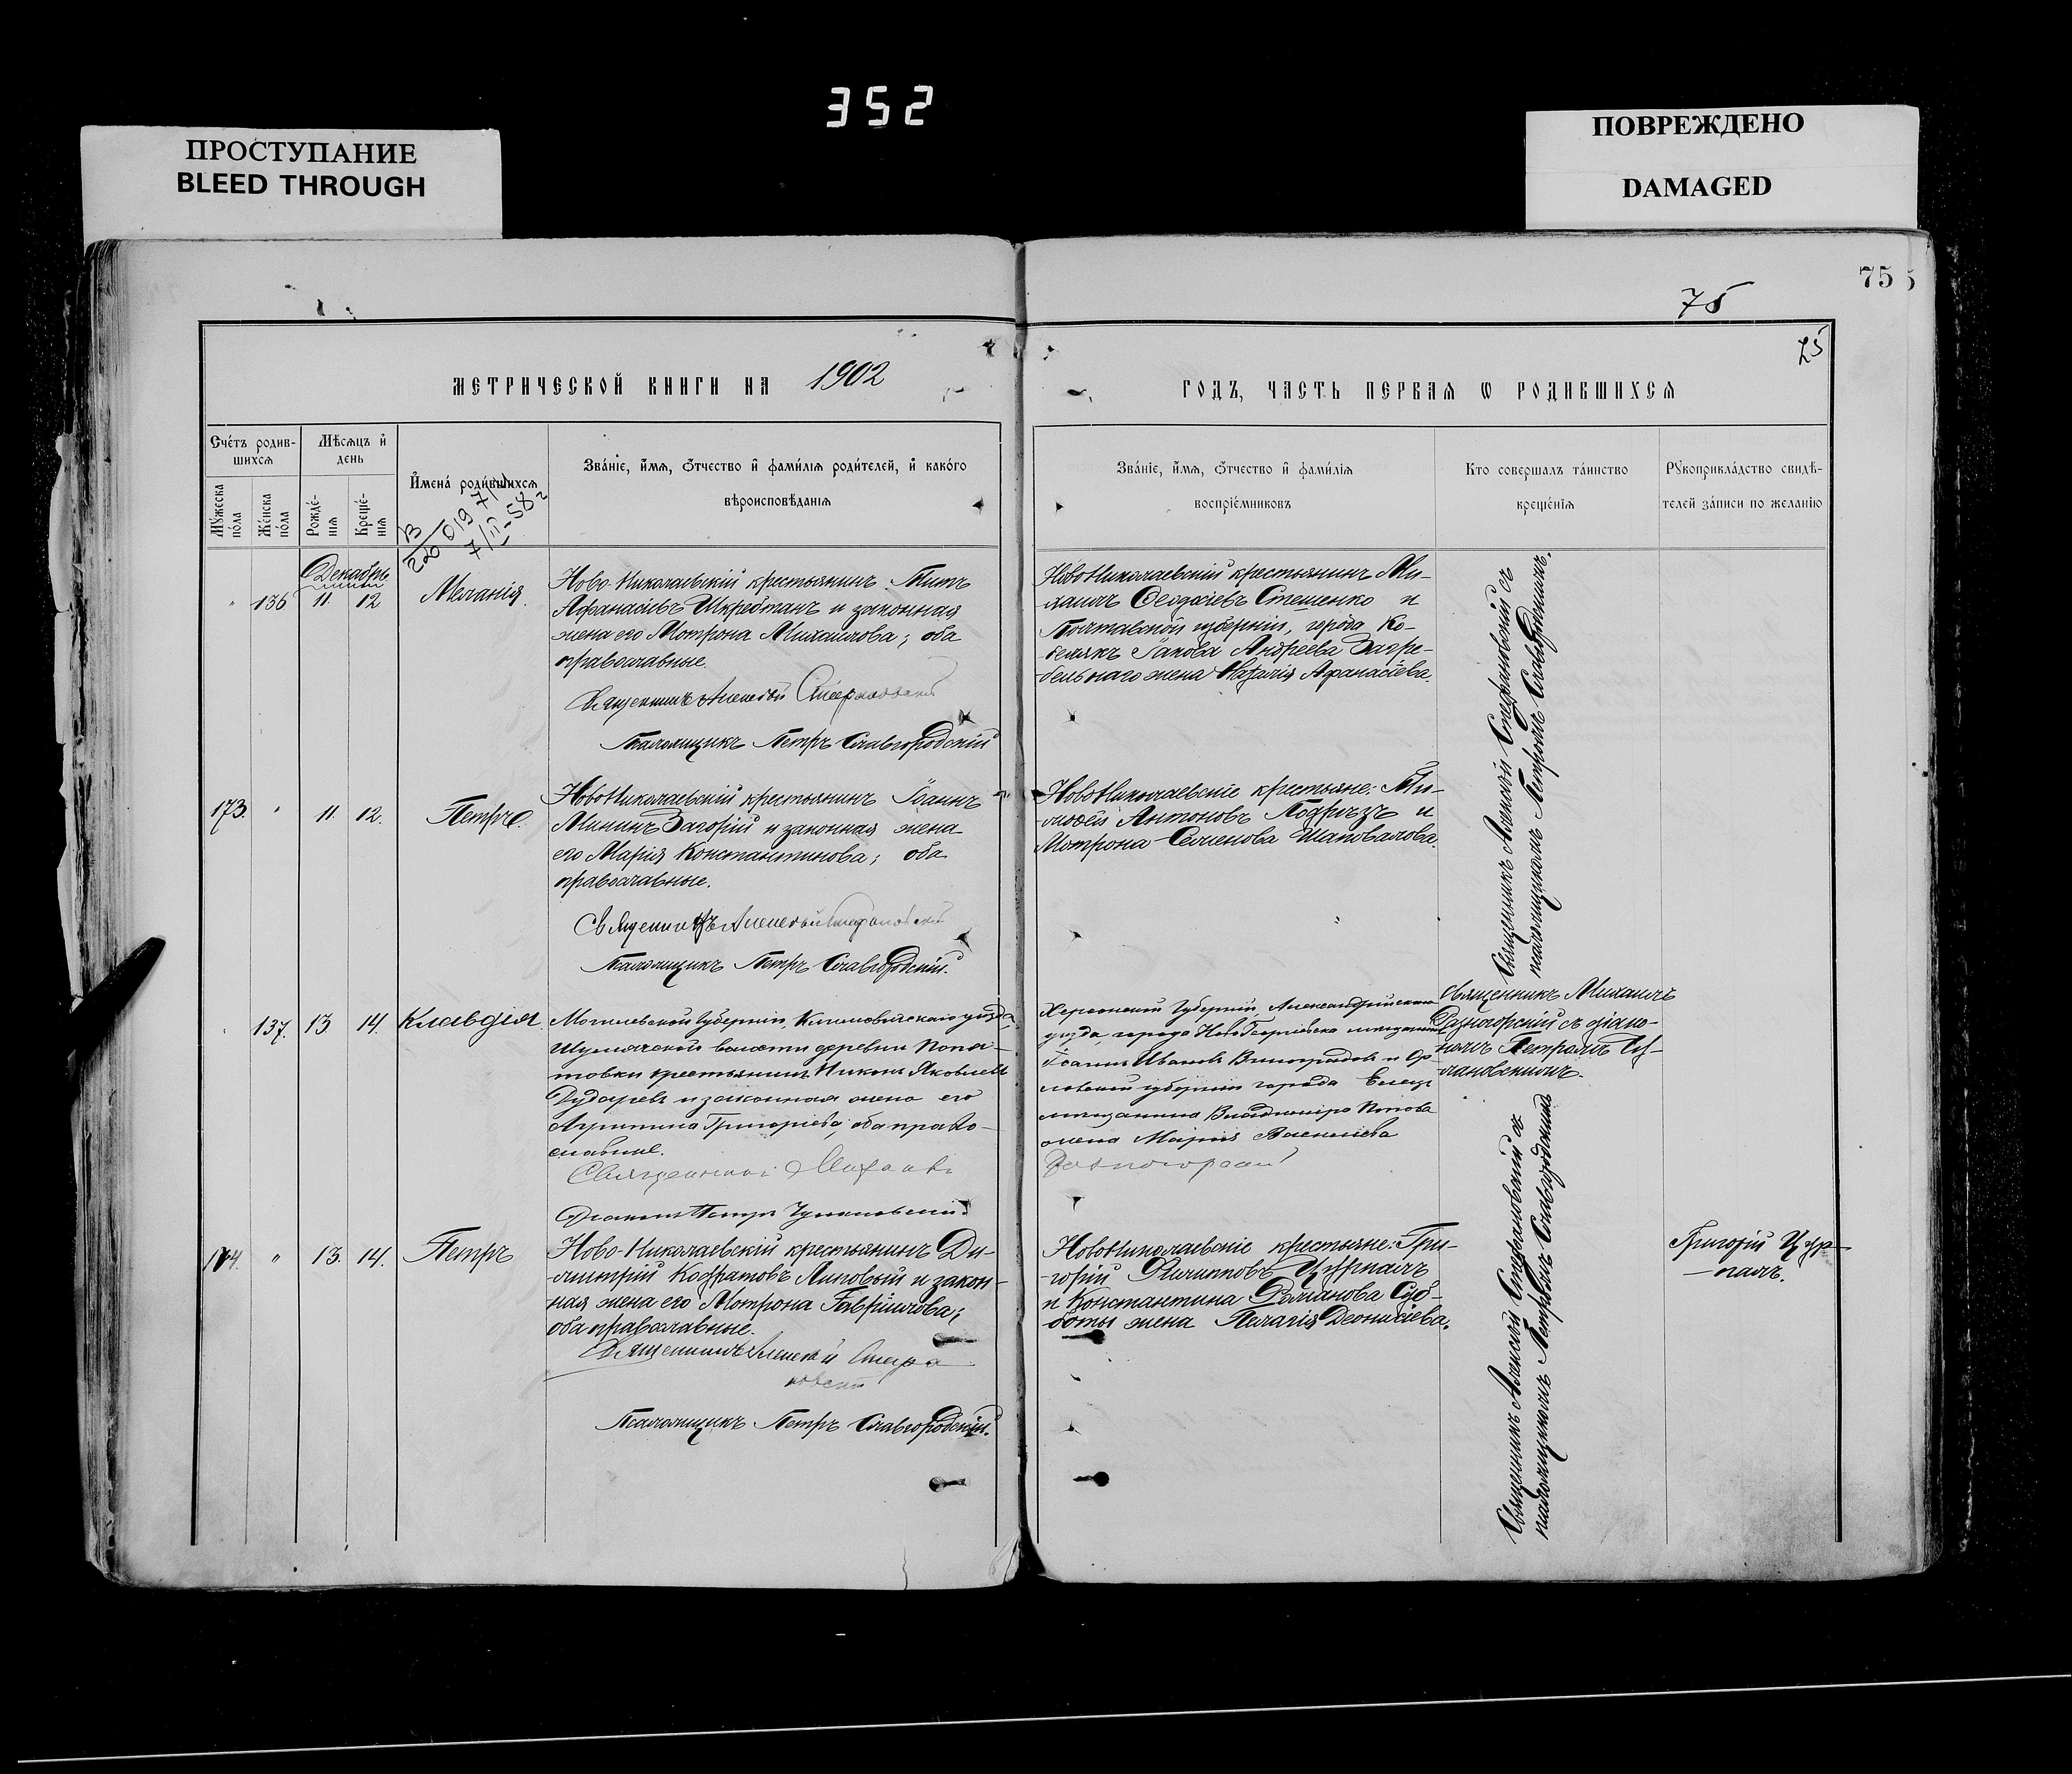 352
ПРОСТУПАНИЕ
BLEED THROUGH
ПОВРЕЖДЕНО
DAMAGED
75
75
75
МЕТРИЧЕСКОЙ КНИГИ НА 1902
ГОДЪ, ЧАСТЬ ПЕРВАЯ Ѡ РОДИВШИХСЯ
Счётъ родив-
шихся
Мѣсяцъ и
день
Имена родившихся
Званіе, имя, отчество и фамилія родителей, и какого
вѣроисповѣданія
Мужеска
пола
Женска
пола
Рожде-
нія
Креще-
нія
Званіе, имя, отчество и фамилія
воспріемниковъ
Кто совершалъ таинство
крещенія
Рукоприкладство свидѣ-
телей записи по желанію
7/II-58 г
Декабрь
" 136 11. 12 Меланія.
Ново-Николаевскій крестьянинъ Титъ
Афанасіевъ Шкребтанъ и законная
жена его Мотрона Михаилова; оба
православные.
Священникъ Алексѣй Стефановскій
Псаломщикъ Петръ Славгородскій
НовоНиколаевскій крестьянинъ Ми-
хаилъ Ѳеодосіевъ Стешенко и
Полтавской губерніи, города Ко-
белякъ Іакова Андреева Загре-
бельнаго жена Наталія Афанасіева.
Священникъ Алексѣй Стефановскій съ
псаломщикомъ Петромъ Славгородскимъ.
173. " 11. 12. Петръ.
НовоНиколаевскій крестьянинъ Іоаннъ
Мининъ Загорій и законная жена
его Марія Константинова; оба
православные.
Священникъ Алексѣй Стефановскій
Псаломщикъ Петръ Славгородскій.
НовоНиколаевскіе крестьяне: Ти-
моѳей Антоновъ Подрѣзъ и
Мотрона Семенова Шаповалова.
137. 13 14. Клавдія.
Могилевской губерніи, Климовичскаго уѣзда,
Шумячской волости деревни
крестьянинъ Никонъ Яковлевъ
Дударевъ и законная жена его
Агрипина Григоріева, оба право-
славные.
Священникъ Михаилъ
Разногорскій
Діаконъ Петръ
Херсонской губерніи, Александрійскаго
уѣзда, города НовоГеоргіевска мѣщанинъ
Іоаннъ Ивановъ Виноградовъ и Ор-
ловской губерніи города Ельца
мѣщанина Владиміра Попова
жена Марія Васильева
Священникъ Михаилъ
Разногорскій съ діако-
номъ Петромъ
174. " 13. 14. Петръ
Ново-Николаевскій крестьянинъ Ди-
митрій Кодратовъ Липовый и закон-
ная жена его Мотрона Гавріилова;
оба православные.
Священникъ Алексѣй Стефа
новскій
Псаломщикъ Петръ Славгородскій.
НовоНиколаевскіе крестьяне: Гри-
горій Филипповъ
и Константина Романова Суб-
боты жена Пелагія Деонисіева.
Священникъ Алексѣй Стефановскій съ
псаломщикомъ Петромъ Славгородскимъ
Григорій